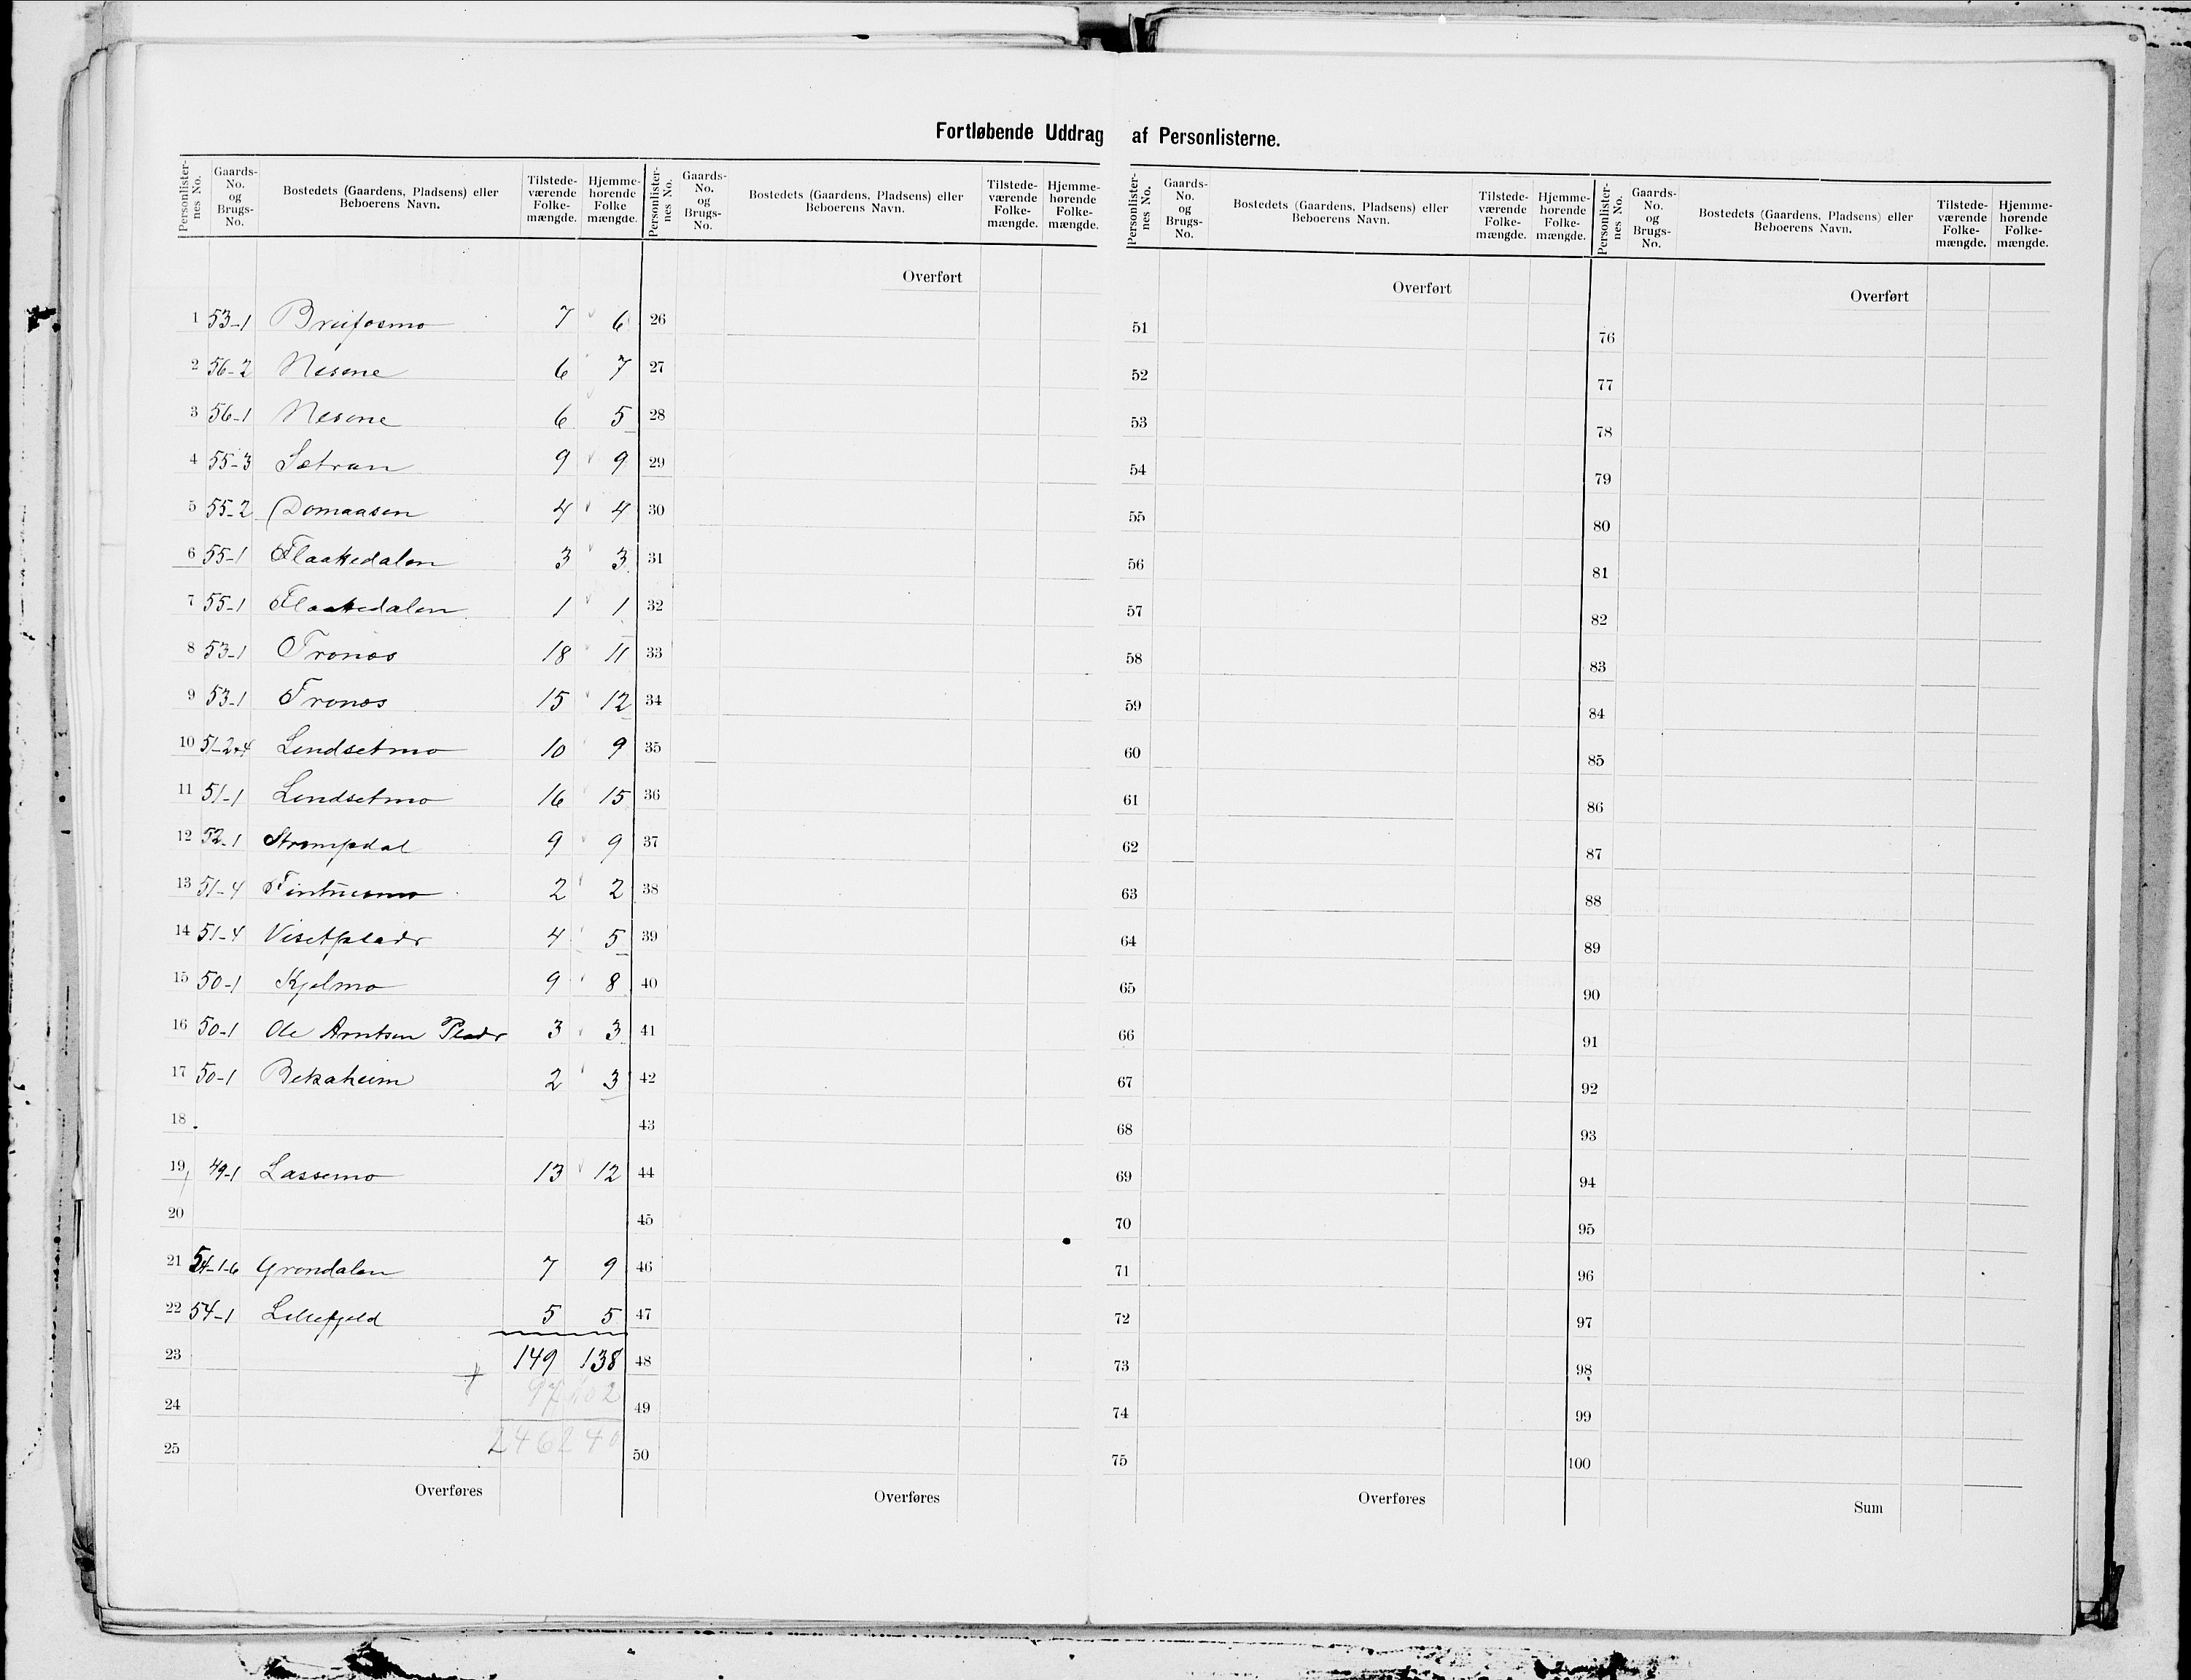 Fortløbende Uddrag af Personlisterne.
Personlister-nes No. Gaards-No. og Brugs-No. Bostedets (Gaardens, Pladsens) eller Beboerens Navn. Tilstede-værende Folke-mængde. Hjemme-hørende Folke mængde.
Personlister-nes No. Gaards-No. og Brugs-No. Bostedets (Gaardens, Pladsens) eller Beboerens Navn. Tilstede-værende Folke-mængde. Hjemme-hørende Folke-mængde.
Personlister-nes No. Gaards-No. og Brugs-No. Bostedets (Gaardens, Pladsens) eller Beboerens Navn. Tilstede-værende Folke-mængde. Hjemme-hørende Folke-mængde.
Personlister-nes No. Gaards-No. og Brugs-No. Bostedets (Gaardens, Pladsens) eller Beboerens Navn. Tilstede-værende Folke-mængde. Hjemme-hørende Folke-mængde.
1 53-1 Breifosmo 7 6
2 56-2 Nesene 6 7
3 56-1 Nesene 6 5
4 55-3 Setran 9 9
5 55-2 Domaasen 4 4
6 55-1 Flaattedalen 3 3
7 55-1 Flaattedalen 1 1
8 53-1 Trones 18 11
9 53-1 Trones 15 12
10 51-2+4 Lindsetmo 10 9
11 51-1 Lindsetmo 16 15
12 52-1 Strompdal 9 9
13 51-4 2 2
14 51-4 4 5
15 50-1 Kjelmo 9 8
16 50-1 Ole Arntsen Plads 3 3
17 50-1 Bekaheim 2 3
18
19 49-1 Lassemo 13 12
20
21 54-1-6 Grondalen 7 9
22 54-1 Lillefjeld 5 5
23 149 138
24 97 102
25 246 240
Overføres
Overført
26
27
28
29
30
31
32
33
34
35
36
37
38
39
40
41
42
43
44
45
46
47
48
49
50
Overføres
Overført
51
52
53
54
55
56
57
58
59
60
61
62
63
64
65
66
67
68
69
70
71
72
73
74
75
Overføres
Overført
76
77
78
79
80
81
82
83
84
85
86
87
88
89
90
91
92
93
94
95
96
97
98
99
100
Sum